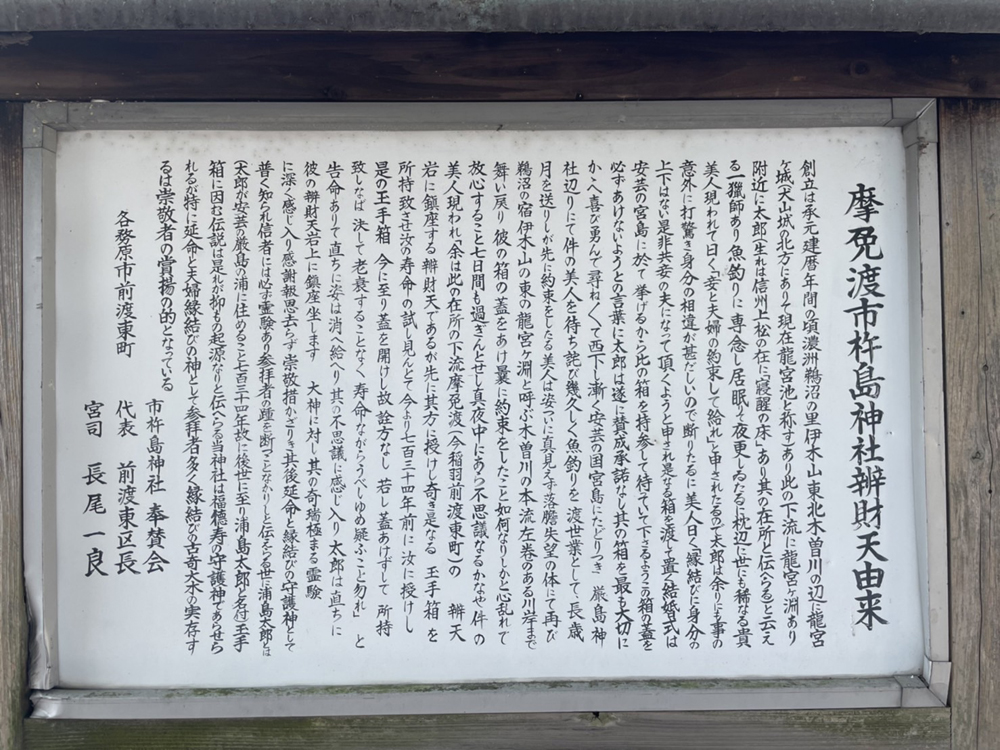 摩免渡市杵島神社辨財天由来
創立は承元建暦年間の頃濃洲鵜沼の里伊木山東北木曽川の辺に龍宮
ヶ城(犬山城の北方にあり)て現在龍宮池と称すあり此の下流に龍宮ヶ渕あり
附近に太郎(生れは信州上松の在に「寝醒の床」あり其の在所と伝へらる)と云え
る一獵師あり魚釣りに専念し居眠りて夜更しゐたるに枕辺に世にも稀なる貴
美人現われて曰く「妾と夫婦の約束して給れ」と申されたるので太郎は余りにも事の
意外に打驚き身分の相違が甚だしいので断りたるに美人曰く「縁結びに身分の
上下はない是非共妾の夫になって頂くようと申され是なる箱を渡して置く結婚式は
安芸の宮島に於て挙げるから此の箱を持参して待ていて下さるようこの箱の蓋を
必ずあけないようとの言葉に太郎は遂に賛成承諾なし其の箱を最も大切に
かゝへ喜び勇んで尋ねく て西下し漸く安芸の国宮島にたどりつき 厳島神
社辺りにて件の美人を待ち詫び幾久しく魚釣りを渡世業として、長歳
月を送りしが先に約束をしたる美人は姿ついに真見えず落膽失望の体にて再び
鵜沼の宿伊木山の東の龍宮ヶ渕と呼ぶ木曽川の本流左巻のある川岸まで
舞い戻り彼の箱の蓋をあけ曩に約束をしたこと如何なりしかと心乱れて
放心すること七日間も過ぎんとせし真夜中にあら不思議なるかなや件の
美人現われ「余は此の在所の下流摩免渡(今稲羽前渡東町)の 辨天
岩に鎮座する辨財天であるが先に其方に授けし奇き是なる 玉手箱を
所持致させ汝の寿命の試し見んとて今より七百三十四年前に汝に授けし
是の玉手箱 今に至り蓋を開けし故 詮方なし 若し蓋あけずして 所持
致しなば 決して老衰することなく 寿命ながらうべしゆめ疑ふこと勿れ」 と
告命ありて直ちに姿は消へ給へり其の不思議に感じ入り太郎は直ちに
彼の辨財天岩上に鎮座坐します 大神に対し其の奇瑞極まる霊験
に深く感じ入り感謝報恩去らず崇敬措かざりきて其後延命と縁結びの守護神として
普く知られ信者には必ず霊験あり参拝者の踵を断つことなかりしと伝える世に浦島太郎とは
(太郎が安芸の厳島の浦に住めること七百三十四年故に後世に至り浦島太郎と名付)玉手
箱に因む伝説は是れが抑もの起源なりと伝へらる当神社は福徳寿の守護神であらせら
れるが特に延命と夫婦縁結びの神として参拝者多く縁結びの古奇大木の実存す
るは崇敬者の賞揚の的となっている
各務原市前渡東町
市杵島神社 奉賛会
代表 前渡東区長
宮司 長尾一良